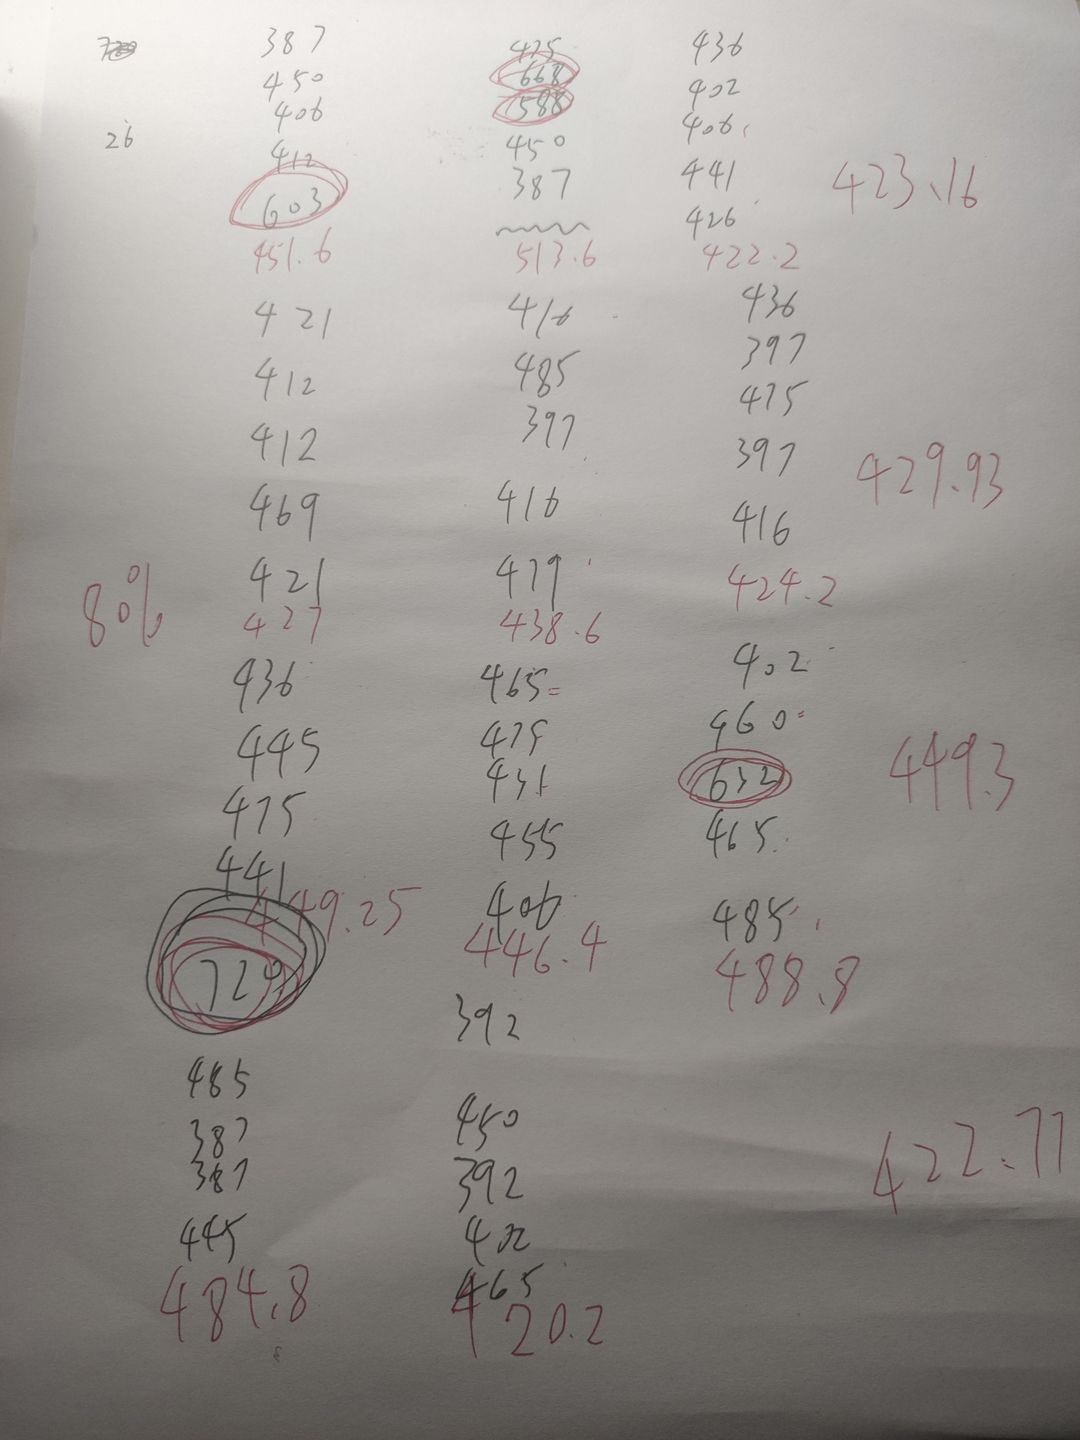 26
80%
387
450
406
412
603
451.6
421
412
412
469
421
427
436
445
475
441
449.25
729
485
387
387
445
484.8
475
668
588
450
387
513.6
416
485
397
416
479
438.6
465
475
431
455
406
446.4
392
450
392
402
465
420.2
436
402
406
441
426
422.2
436
397
475
397
416
424.2
402
460
632
465
485
488.8
423.16
429.93
449.3
422.77